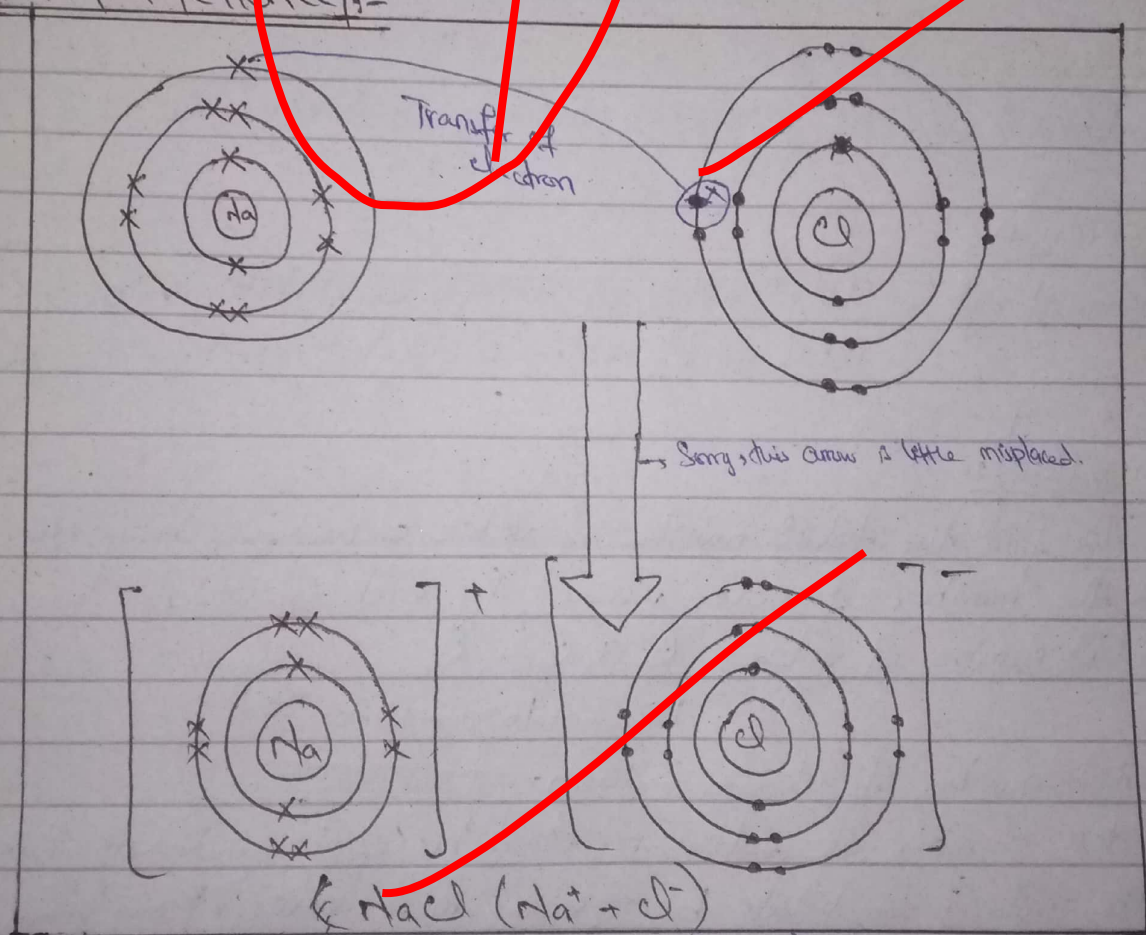 Transfer of
electron
Na
Cl
Sorry, this arrow is little misplaced.
+
−
Na
Cl
NaCl (Na⁺ + Cl⁻)